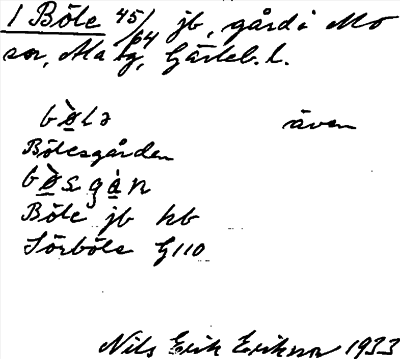 1 Böle 45/64 jb, gård i Mo
sn, Ala hg, Gävleb. l.
bø̀lə även
Bölesgården
bø̀sgàɳ
Böle jb kb
Sörböle G110
Nils Erik Erikson 1933